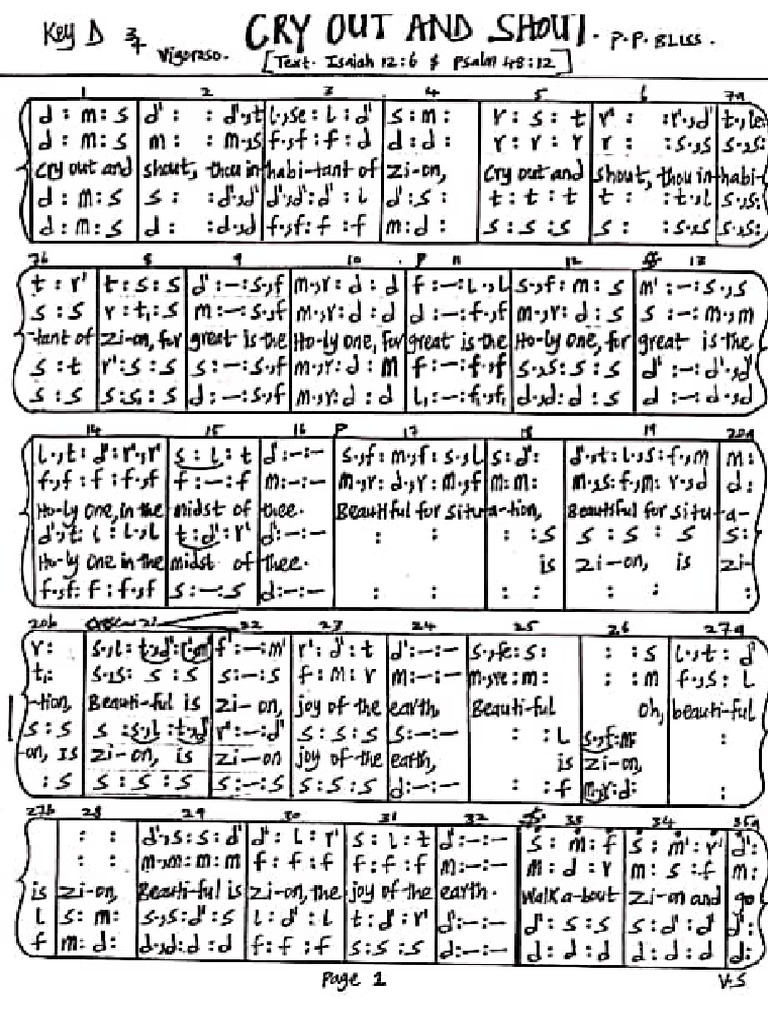 Key D 3/4 Vigoroso. CRY OUT AND SHOUT. P.P. BLISS.
[Text. Isaiah 12:6 & Psalm 48:12]
1 2 3 4 5 6 7a
d : m : s | d' : : d'.,t | l.,se : l : d' | s : m : | r : s : t | r' : : r'.,d' | t.,le :
d : m : s | m : : m.,s | f.,f : f : d | d : d : | r : r : r | r : : s.,s | s.,s :
Cry out and shout, thou in-habi-tant of Zi-on, Cry out and shout, thou in-habi-
d : m : s | s : : d'.,d' | d'.,d' : d' : l | d' : s : | t : t : t | t : : t.,l | s.,s :
d : m : s | d : : d.,d | f.,f : f : f | m : d : | s : s : s | s : : s.,s | s.,s :
7b 8 9 10 P 11 12 ff 13
t : r' | t : s : s | d' : – : s.,f | m.,r : d : d | f : – : l.,l | s.,f : m : s | m' : – : s.,s
s : s | r : t, : s | m : – : s.,f | m.,r : d : d | d : – : f.,f | m.,r : d : s | s : – : m.,m
-tant of Zi-on, for great is the Ho-ly one, for great is the Ho-ly One, for great is the
s : t | r' : s : s | s : – : s.,f | m.,r : d : m | f : – : f.,f | s.,s : s : s | d' : – : d'.,d'
s : s | s : s : s | d : – : s.,f | m.,r : d : d | l, : – : f,.,f, | d.,d : d : s | d : – : d.,d
14 15 16 P 17 18 19 20a
l.,t : d' : r'.,r' | s : l : t | d' : – : – | s.,f : m.,f : s.,l | s : d' : | d'.,t : l.,s : f.,m | m :
f.,f : f : f.,f | f : – : f | m : – : – | m.,r : d.,r : m.,f | m : m : | m.,s : f.,m : r.,d | d :
Ho-ly one, in the midst of thee. Beautiful for situ-a-tion, Beautiful for situ-a-
d'.,t : l : l.,l | t : d' : r' | d' : – : – | : : | : : s | s : s : s | s :
Ho-ly one in the midst of thee. is Zi-on, is Zi-
f.,f : f : f.,f | s : – : s | d : – : – | : : | : : | : : | :
20b 21 22 23 24 25 26 27a
r : | s.,l : t.,d' : r'.,m' | f' : – : m' | r' : d' : t | d' : – : – | s.,fe : s : | : : s | l.,t : d'
t, : | s.,s : s : s | s : – : s | f : m : r | m : – : – | m.,re : m : | : : m | f.,s : l
-tion, Beauti-ful is Zi-on, joy of the earth, Beauti-ful Oh, beauti-ful
s : s | s : s.,l : t.,d' | r' : – : d' | s : s : s | s : – : – | : : l | s.,f : m : | :
on, is Zi-on, is Zi-on joy of the earth, is Zi-on,
: s | s : s : s | s : – : s | s : s : s | d : – : – | : : f | m.,r : d : | :
27b 28 29 30 31 32 ff 33 34 35a
: : | d'.,s : s : d' | d' : l : r' | s : l : t | d' : – : – | s : m : f | s : m' : r' | d' :
: : | m.,m : m : m | f : f : f | f : f : f | m : – : – | m : d : r | m : s : f | m :
is Zi-on, Beauti-ful is Zi-on, the joy of the earth. Walk a-bout Zi-on and go
l | s : m : | s.,s : d' : s | l : d' : l | t : d' : r' | d' : – : – | d' : s : s | s : d' : d' | d' :
f | m : d : | d.,d : d : d | f : f : f | s : s : s | d : – : – | d : d : d | d : d : d | d :
Page 1 V.S